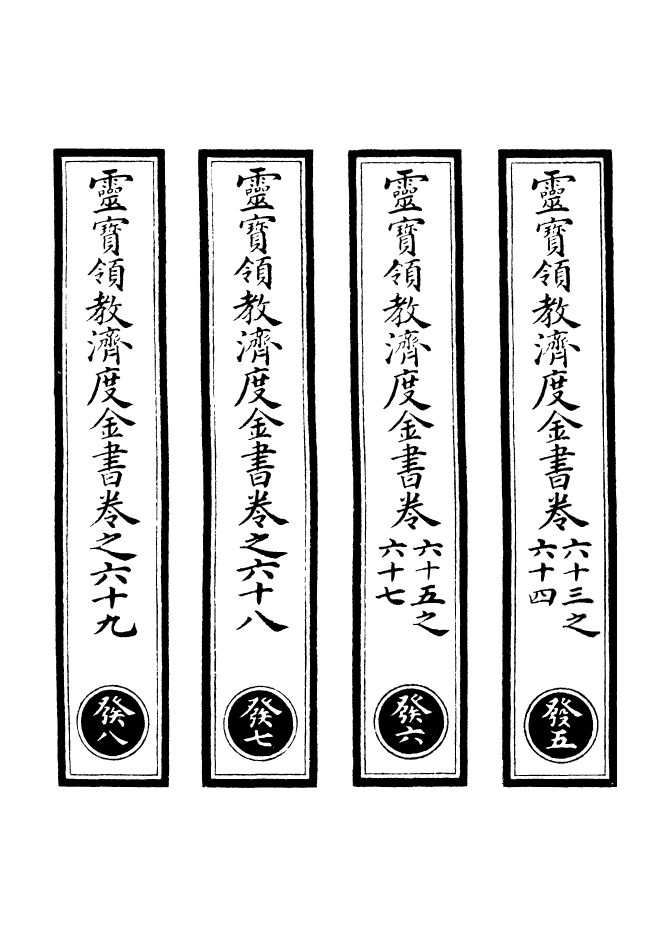 靈寶領教濟度金書卷六十三之
六十四
發五
靈寶領教濟度金書卷六十五之
六十七
發六
靈寶領教濟度金書卷之六十八
發七
靈寶領教濟度金書卷之六十九
發八